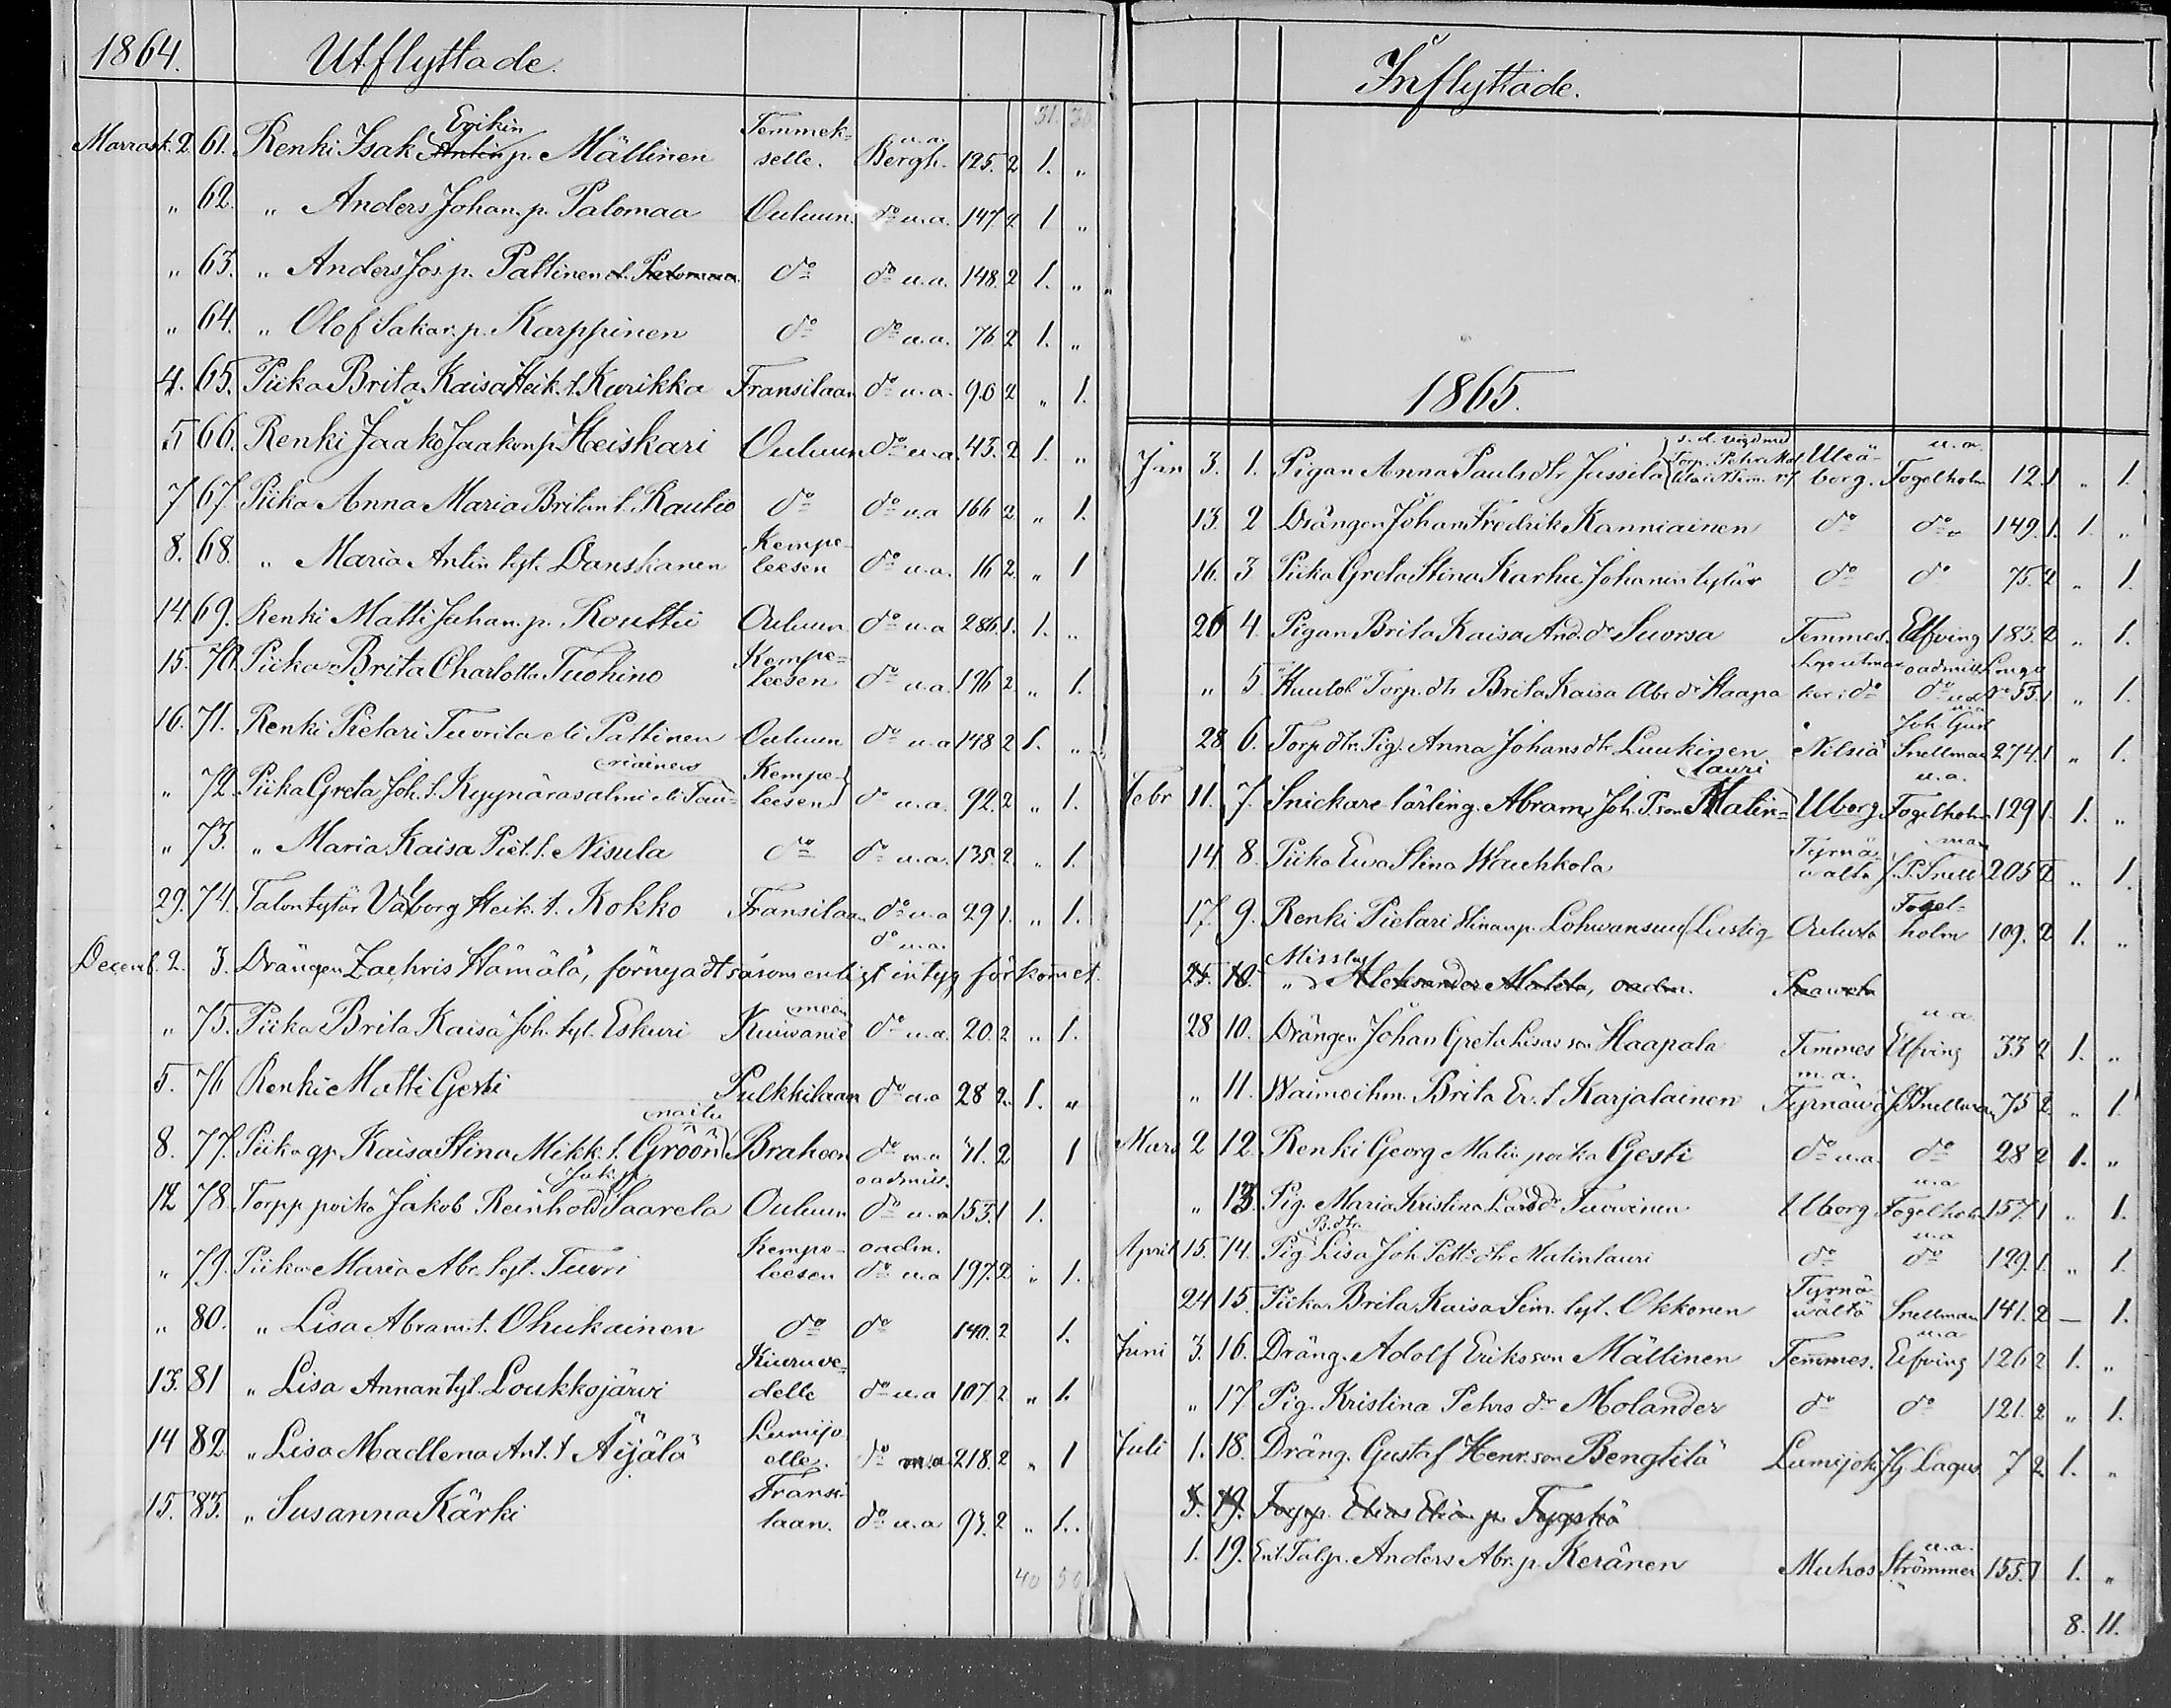 1864. Utflyttade.
31. 30.
Marrask. 2. 61. Renki Isak Erikin Antin p. Mällinen Temmekselle. u.a. Bergh. 125. 2 1. „
„ 62. „ Anders Johan. p. Palomaa Ouluun. do u.a. 147 2. 1 „
„ 63. „ Anders Jos. p. Pattinen el. Palomaa do do u.a. 148. 2 1. „
„ 64. „ Olof Sakar. p. Karppinen do do u.a. 76 2 1. „
4. 65. Piika Brita Kaisa Heik. t. Kurikka Fransilaan do u.a. 90 2 „ 1.
5 66. Renki Jaako Jaakon p. Heiskari Ouluun do u.a. 43. 2 1. „
7 67. Piika Anna Maria Britan t. Rautio do do u.a 166 2 „ 1.
8. 68. „ Maria Antin tyt. Danskanen Kempeleesen do u.a. 16 2. „ 1
14. 69. Renki Matti Juhan. p. Koultti Ouluun do u.a 286. 1. 1. „
15. 70. Piika Brita Charlotta Tuohino Kempeleesen do u.a. 196 2 „ 1.
16. 71. Renki Pietari Tuorila eli Pattinen Ouluun do u.a 148 2 1. „
„ 72. Piika Greta Joh. t. Kyynäräsalmi eli Tauriainen Kempeleesen do u.a. 92. 2 „ 1.
„ 73. „ Maria Kaisa Piet. t. Nisula do do u.a. 135. 2. „ 1.
29. 74. Talontytär Valborg Heik. t. Kokko Fransilaan do u.a 29 1. „ 1.
Decemb. 2. 3. Drängen Zachris Hämälä, förnyadt såsom enligt intyg förkommet. do u.a.
„ 75. Piika Brita Kaisa Joh. tyt. Eskuri Kuiwaniemeen do u.a. 20. 2 „ 1.
5. 76 Renki Matti Gesti Pulkkilaan do u.a 28 2. 1. „
8. 77. Piika gp. Kaisa Stina Mikk. t. Gröön naitu Braheen do m.a 41. 2 1
12 78. Torpp. poika Jakob Reinhold Jak. p. Saarela Ouluun oadmiss. do u.a 153. 1 1.
„ 79. Piika Maria Abr. tyt. Tuori Kempeleesen oadm. do u.a 197. 2 „ 1.
„ 80. „ Lisa Abram. t. Ohukainen do do 140. 2 1.
13. 81 „ Lisa Annan tyt. Loukkojärvi Kiuruvedelle do u.a 107. 2 „ 1.
14 82. „ Lisa Madlena Ant. t Äijälä Lumijoelle. do m.a 218. 2 „ 1
15. 83. „ Susanna Kärki Fransilaan. do u.a 94. 2 „ 1.
40 50
Inflyttade.
1865.
Jan 3. 1. Pigan Anna Paulsdtr Jussila Uleåborg. u.a. Fogelholm 12. 1 „ 1.
13. 2 Drängen Johan Fredrik Kanniainen do do 149. 1. 1. „
16. 3 Piika Greta Stina Karhu Johanin tytär do do 75. 2 „ 1.
26 4. Pigan Brita Kaisa And. dr Suorsa Temmes. Elfving 183. 2 „ 1.
„ 5 Torp. dtr Brita Kaisa Abr. dr Haapa do 55. 1 „ 1.
28 6. Torp dtr. Pig. Anna Johans dtr Luukinen Nilsiä u.a Joh. Gust Snellman 274. 1 „ 1.
Febr 11. 7. Snickare lärling. Abram Joh. P. son Matinlauri Uborg. u.a. Fogelholm 129 1. 1. „
14 8. Piika Ewa Stina Wauhkola Tyrnäwältä J.P. Snellman 205 2 „ 1.
17. 9. Renki Pietari Stinan p. Lohwansuu (Lustig Oulusta Fogelholm 109. 2 1. „
25. 10. Misslyst „ Aleksander Matela, oadm. Paawola
28 10. Drängen Johan Greta Lisas son Haapala Temmes u.a. Elfving 33 2 1. „
„ 11. Waimoihm. Brita Er. t Karjalainen Tyrnäwä m.a. J.P. Snellman 75 2. „ 1.
Mars 2 12. Renki Georg Matin poika Gesti do u.a. do 28 2 1. „
„ 13. Pig. Maria Kristina Lars dr Tuowinen Uborg u.a Fogelholm 157. 1 „ 1.
April 15. 14. Pig B. dtr. Lisa Joh. Pett. dtr Matinlauri do u.a do 129. 1. „ 1.
24 15. Piika Brita Kaisa Sim. tyt. Okkonen Tyrnäwältä Snellman 141. 2 — 1.
Juni 3. 16. Dräng. Adolf Eriksson Mällinen Temmes. u.a Elfving 126 2 1. „
„ 17 Pig. Kristina Pehrs dr Molander do do 121. 2 „ 1.
Juli 1. 18. Dräng. Gustaf Henr. son Bengtilä Lumijoki Hj. Lagus 7 2. 1. „
5. 19. Torpp. Elias Elia p. Typpö
1. 19. Ent. Tal. p. Anders Abr. p. Keränen Muhos u.a. Strömmer 155. 1 1. „
8. 11.